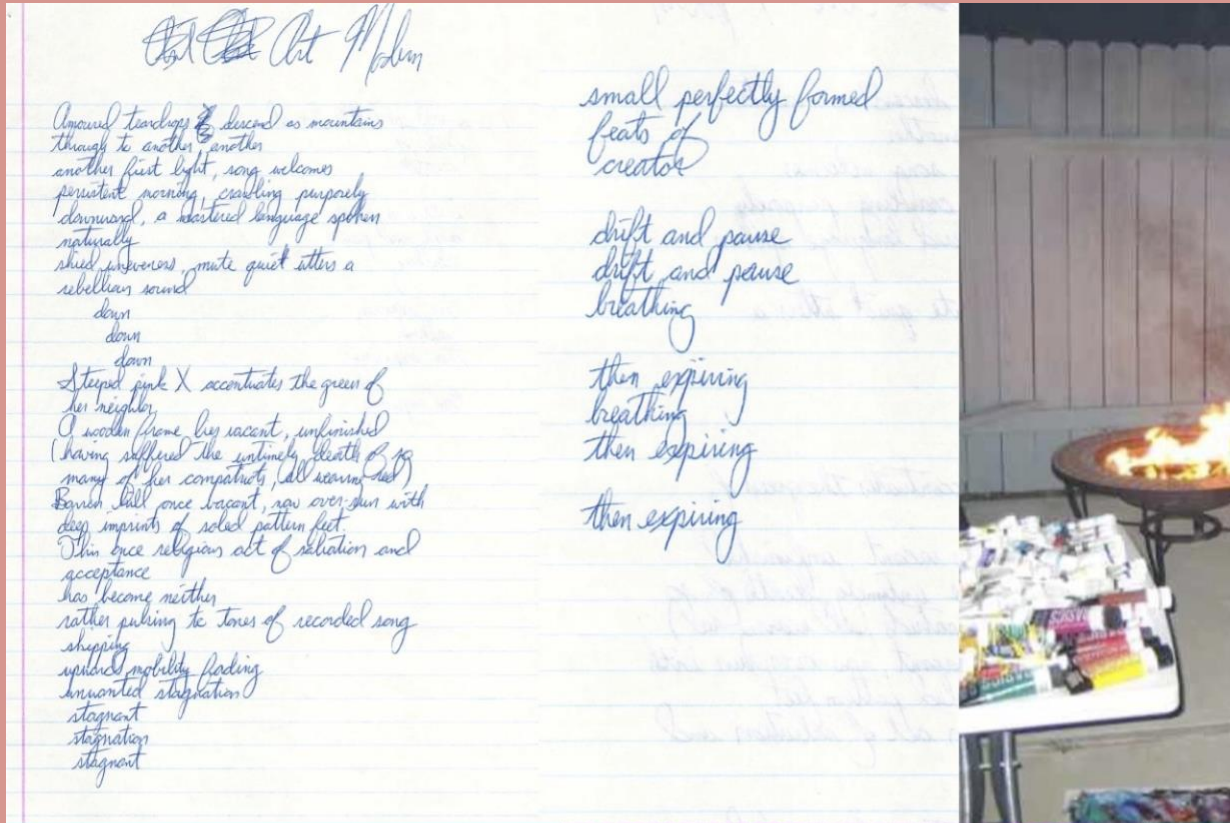 Art Modern
Amoured teardrops descend as mountains
through to another another
another first light, song welcomes
persistent morning, crawling purposely
downward, a mastered language spoken
naturally
shied uneveness, mute quiet utters a
rebellious sound
down
down
down
Steeped pink X accentuates the green of
her neighbor
A wooden frame lies vacant, unfinished
(having suffered the untimely death of
many of her compatriots, (all wearing red)
Barren hill once vacant, now over-run with
deep imprints of soled pattern feet.
This once religious act of salvation and
acceptance
has become neither
rather pulsing to tones of recorded song
shipping
upward mobility fading
unwanted stagnation
stagnant
stagnation
stagnant
small perfectly formed
feats of
creator
drift and pause
drift and pause
breathing
then expiring
breathing
then expiring
then expiring